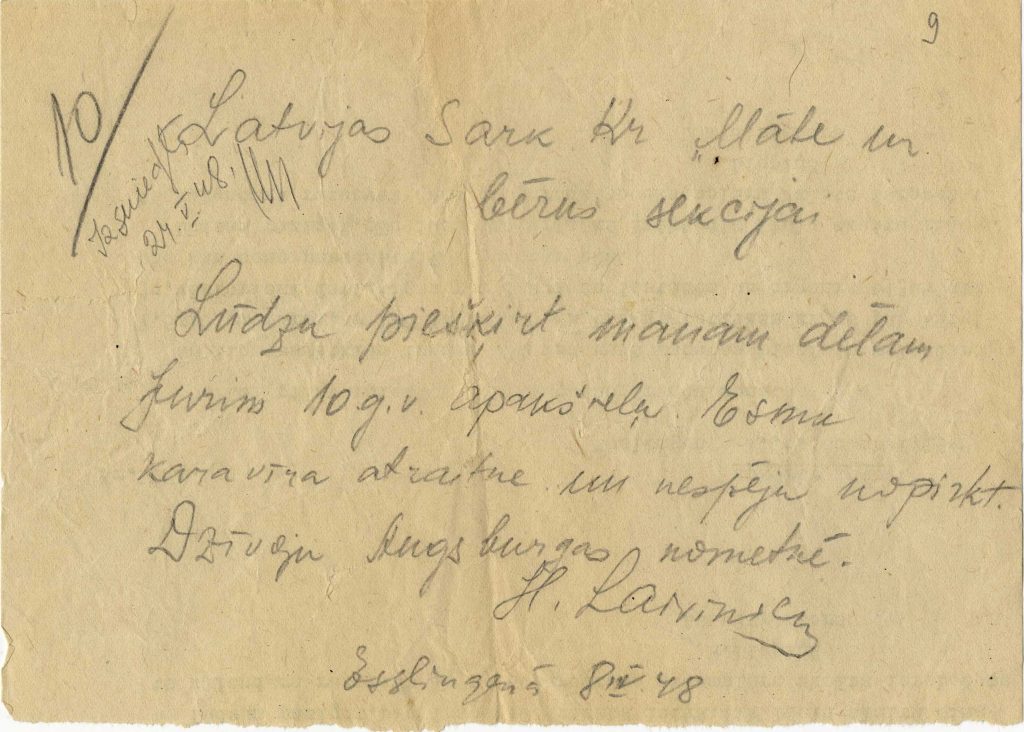 9
10/
Izsniegts
24. V 48.
Latvijas Sark Kr „Māte un
bērns sekcijai
Lūdzu piešķirt manam dēlam
Jurim 10 g.v. apakšveļu. Esmu
karavīra atraitne un nespēju nopirkt.
Dzīvoju Augsburgas nometnē.
H. Laiviniece
Esslingenā 8 IV 48